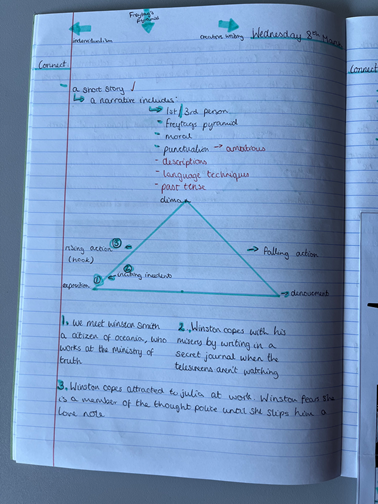 Freytag's
Pyramid
creative writing
Wednesday 8th March
Connect
Connect
- a short story ✓
↳ a narrative includes:
↳ 1st / 3rd person
- freytags pyramid
- moral
- punctuation → ambitious
- descriptions
- language techniques
- past tense
climax
rising action ③
(hook)
→ falling action
②
① ← inciting incidents
→ denouement
1. We meet Winston Smith
a citizen of oceania, who
works at the ministry of
truth
2. Winston copes with his
misery by writing in a
secret journal when the
telescreens aren't watching
3. Winston copes attracted to julia at work. Winston fears she
is a member of the thought police until she slips him a
love note